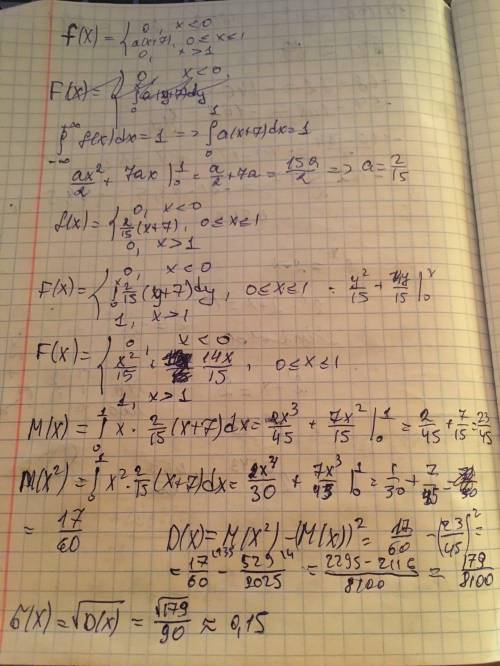 f(x) = { 0, x<0
a(x+7), 0≤x≤1
0, x>1
F(x) = { 0, x<0,
∫ a(y+7)dy
∫_{-∞}^{+∞} f(x)dx = 1 => ∫_0^1 a(x+7)dx = 1
ax²/2 + 7ax |_0^1 = a/2 + 7a = 15a/2 => a = 2/15
f(x) = { 0, x<0
2/15 (x+7), 0≤x≤1
0, x>1
F(x) = { 0, x<0
∫_0^x 2/15 (y+7)dy, 0≤x≤1 = y²/15 + 14y/15 |_0^x
1, x>1
F(x) = { 0, x<0
x²/15 + 14x/15, 0≤x≤1
1, x>1
M(x) = ∫_0^1 x · 2/15 (x+7)dx = 2x³/45 + 7x²/15 |_0^1 = 2/45 + 7/15 = 23/45
M(x²) = ∫_0^1 x² · 2/15 (x+7)dx = 2x⁴/30 + 7x³/45 |_0^1 = 1/30 + 7/45 =
= 17/60 D(x) = M(x²) - (M(x))² = 17/60 - (23/45)² =
= 17/60 - 529/2025 = (2295 - 2116)/8100 = 179/8100
σ(x) = √D(x) = √179/90 ≈ 0,15